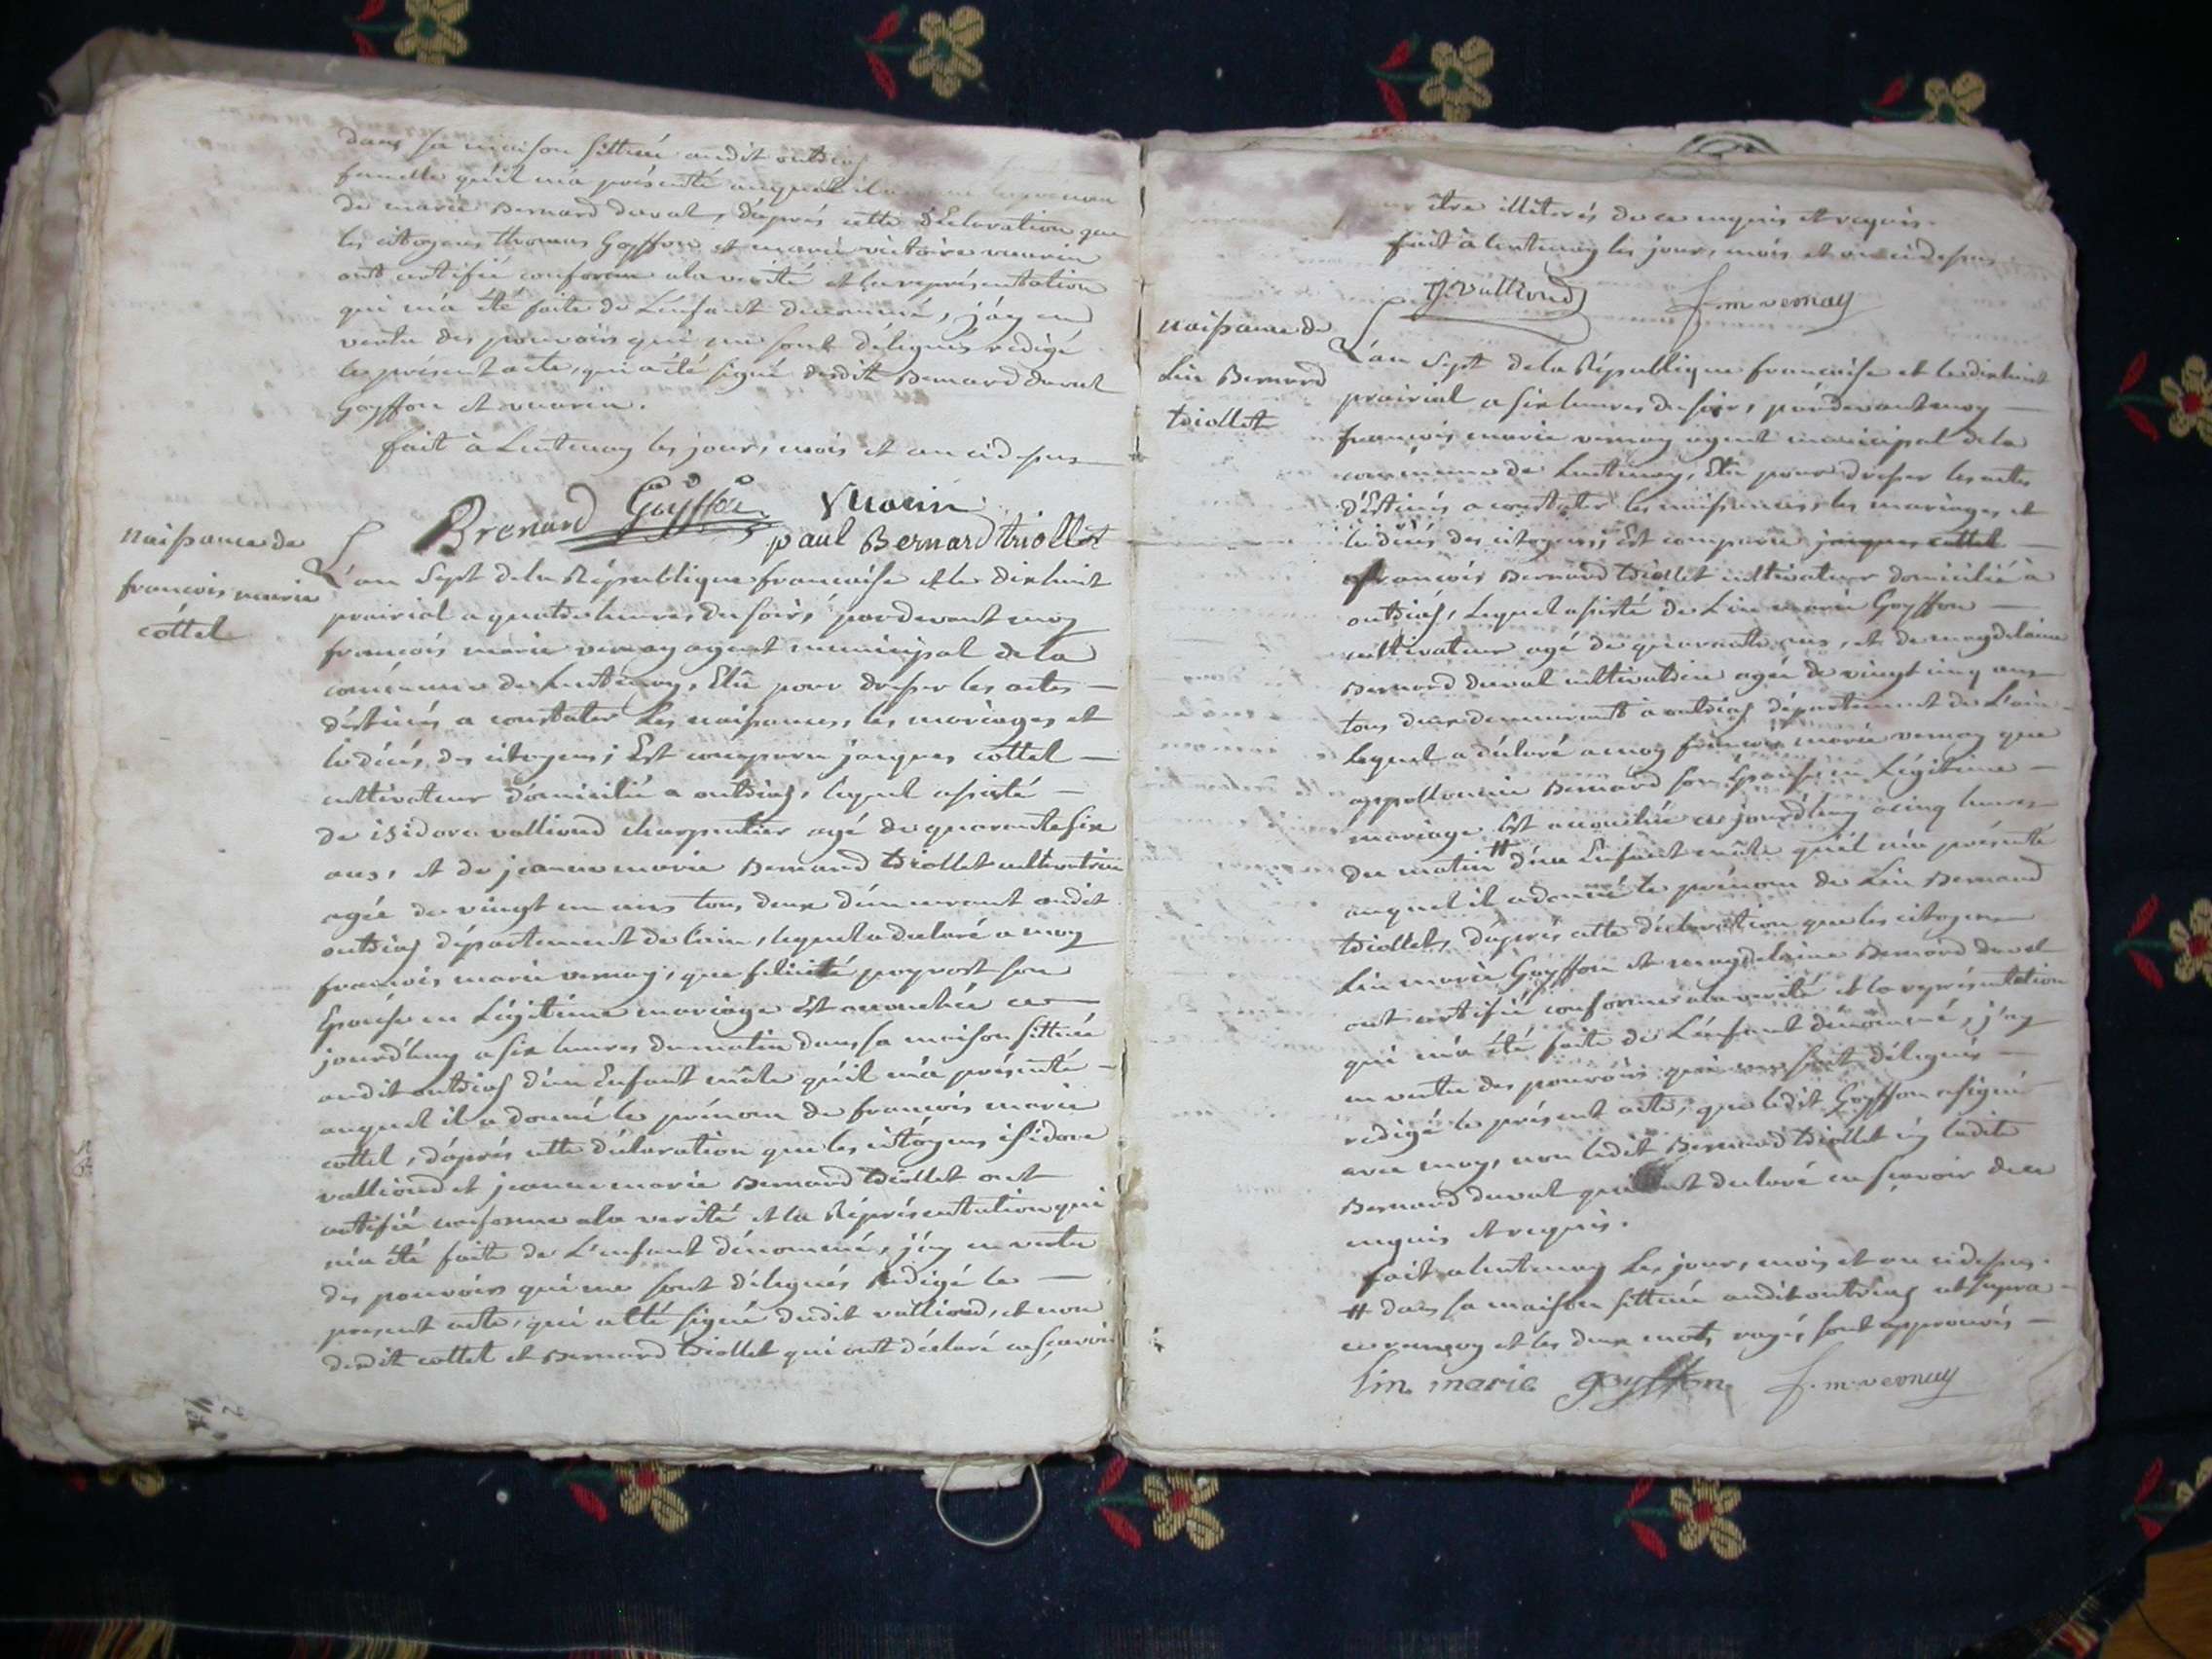 dans sa maison sittuée audit outriaz
femelle qu'il m'a présenté auquel il a le prenom
de marie Bernard duval, d'aprés cette déclaration que
les citoyens thomas Goyffon et marie victoire vuarin
ont certifié conforme a la verité et la représentation
qui m'a été faite de L'enfant denommé, j'ay en
vertu des pouvoirs qui me sont délegués redigé
le présent acte, qui a été signé desdits Bernard duval
Goyffon et vuarin.
fait à Lentenay les jour, mois et an cidessus
Brenard Goyffon Vuarin
paul Bernard triollet
Naissance de
francois marie
cottel
L'an Sept de la République francaise et le dixhuit
prairial a quatre heures du soir, pardevant moy
francois marie vernay agent municipal de la
commune de Lentenay, Elû pour dresser les actes
déstinés a constater Les naissances, les mariages et
le décés des citoyens; Est comparu jacques cottel
cultivateur domicilié a outriaz, lequel assisté
de isidore valliond charpentier agé de quarante six
ans, et de jeanne marie Bernard triollet cultivatrice
agée de vingt un ans tous deux demeurant audit
outriaz département de l'ain, lequel a declaré a moy
francois marie vernay, que felicité puyrost son
Epouse en Légitime mariage Est accouchée ce
jourd'huy a six heures du matin dans sa maison sittuée
audit outriaz d'un Enfant mâle qu'il m'a présenté
auquel il a donné le prénom de francois marie
cottel, d'aprés cette déclaration que les citoyens isidore
valliond et jeanne marie Bernard triollet ont
certifié conforme a la verité et la Réprésentation qui
m'a été faite de L'enfant dénommé, j'ay en vertu
des pouvoirs qui me sont délegués Redigé le
present acte, qui a été signé dudit valliond, et non
desdits cottel et Bernard triollet qui ont déclaré ne sçavoir
être illiterés de ce enquis et requis.
fait à lentenay les jour, mois et an cidessus
J. Valliond f. m vernay
Naissance de
Lin Bernard
triollet
L'an Sept de la République francaise et le dixhuit
prairial a six heures du soir, pardevant moy
francois marie vernay agent municipal de la
commune de Lentenay, Elû pour dresser les actes
déstinés a constater les naissances, les mariages et
le décés des citoyens; Est comparu jacques cottel
francois Bernard triollet cultivateur domicilié à
outriaz, Lequel assisté de Lin marie Goyffon
cultivateur agé de quarante ans, et de magdelaine
Bernard duval cultivatrice agée de vingt cinq ans
tous deux demeurants a outriaz département de L'ain
lequel a déclaré a moy francois marie vernay que
appollonnie Bernard son Epouse en Légitime
mariage Est accouchée ce jourd'huy a cinq heures
du matin # d'un Enfant mâle qu'il m'a présenté
auquel il a donné le prénom de Lin Bernard
triollet, d'aprés cette déclaration que les citoyens
Lin marie Goyffon et magdelaine Bernard duval
ont certifié conforme a la verité et la représentation
qui m'a été faite de L'enfant dénommé, j'ay
en vertu des pouvoirs qui me sont délegués
redigé le présent acte, que ledit Goyffon a signé
avec moy, non ledit Bernard triollet ny ladite
Bernard duval qui ont declaré ne scavoir de ce
enquis et requis.
fait a lentenay Les jour, mois et an cidessus.
# dans sa maison sittuée audit outriaz ut supra
ce renvoy et les deux mots rayés sont approuvés
lin marie goyffon f. m vernay